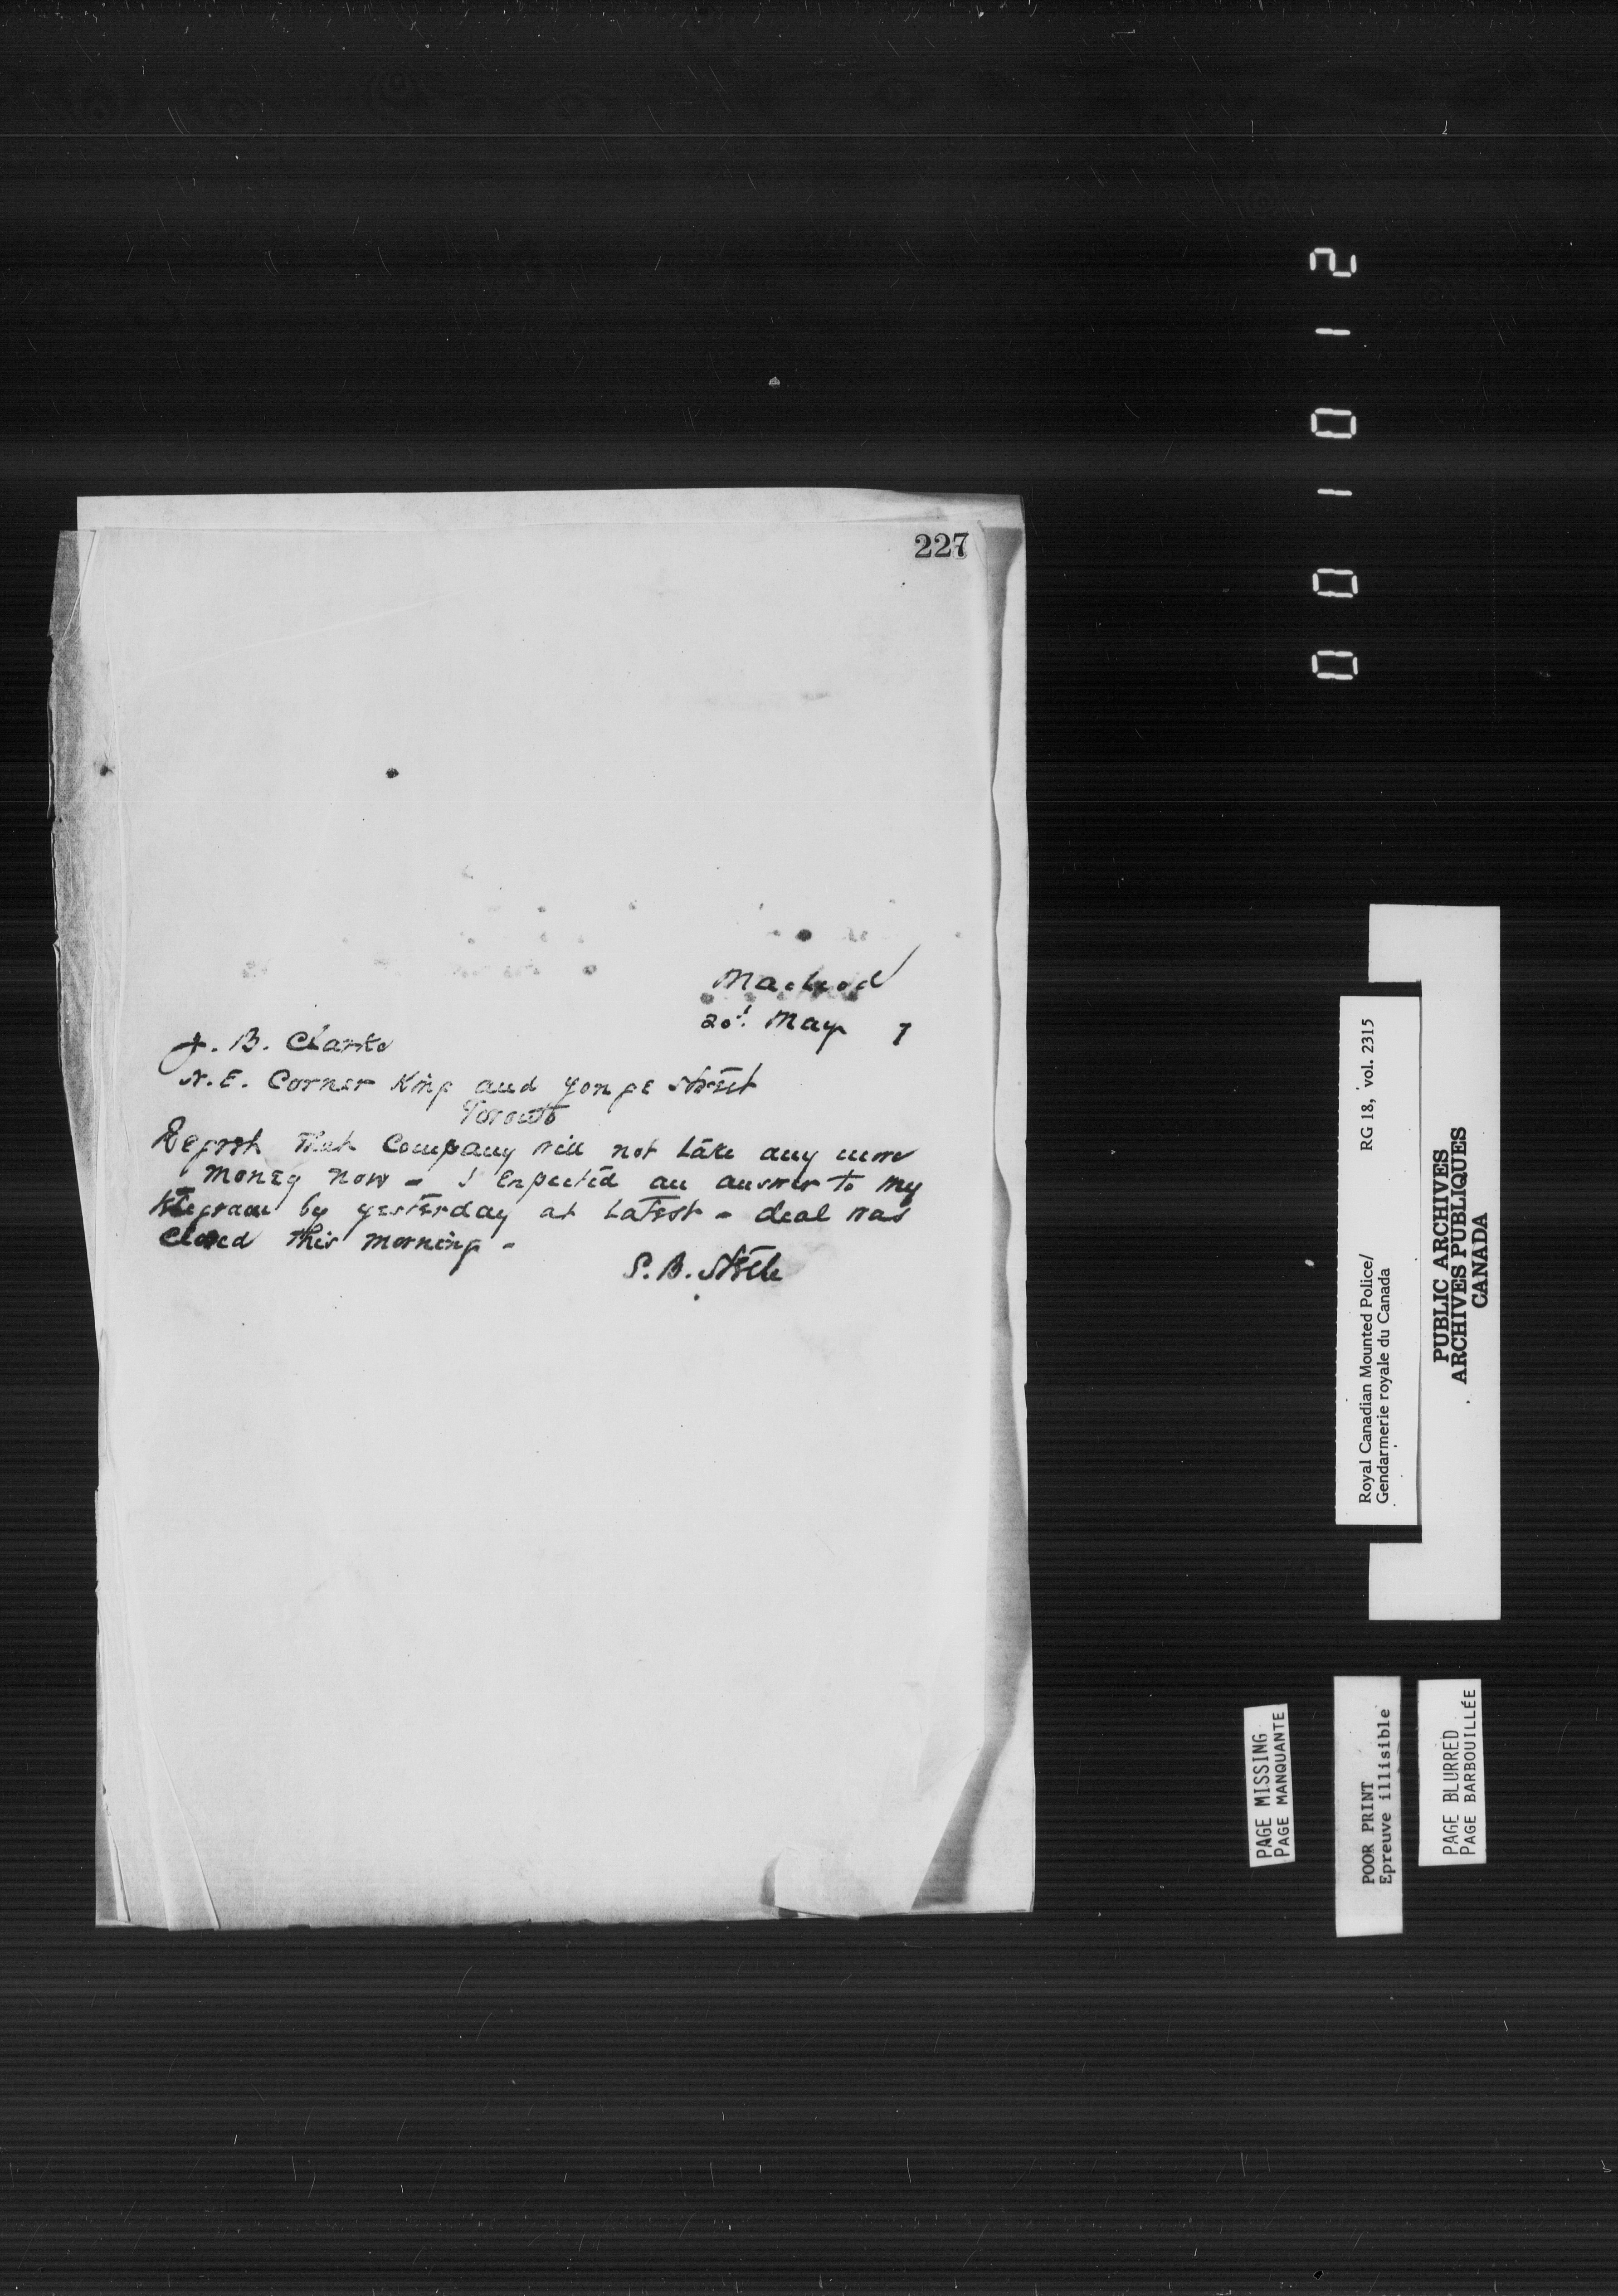 227
Macleod
20th May 7
J. B. Clarke
N.E. Corner King and Yonge Street
Toronto
Regret that Company will not take any more
money now - I expected an answer to my
telegram by yesterday at latest - deal was
closed this morning -
S. B. Steele
000101012
RG 18, vol. 2315
Royal Canadian Mounted Police/
Gendarmerie royale du Canada
PUBLIC ARCHIVES
ARCHIVES PUBLIQUES
CANADA
PAGE MISSING
PAGE MANQUANTE
POOR PRINT
Epreuve illisible
PAGE BLURRED
PAGE BARBOUILLÉE